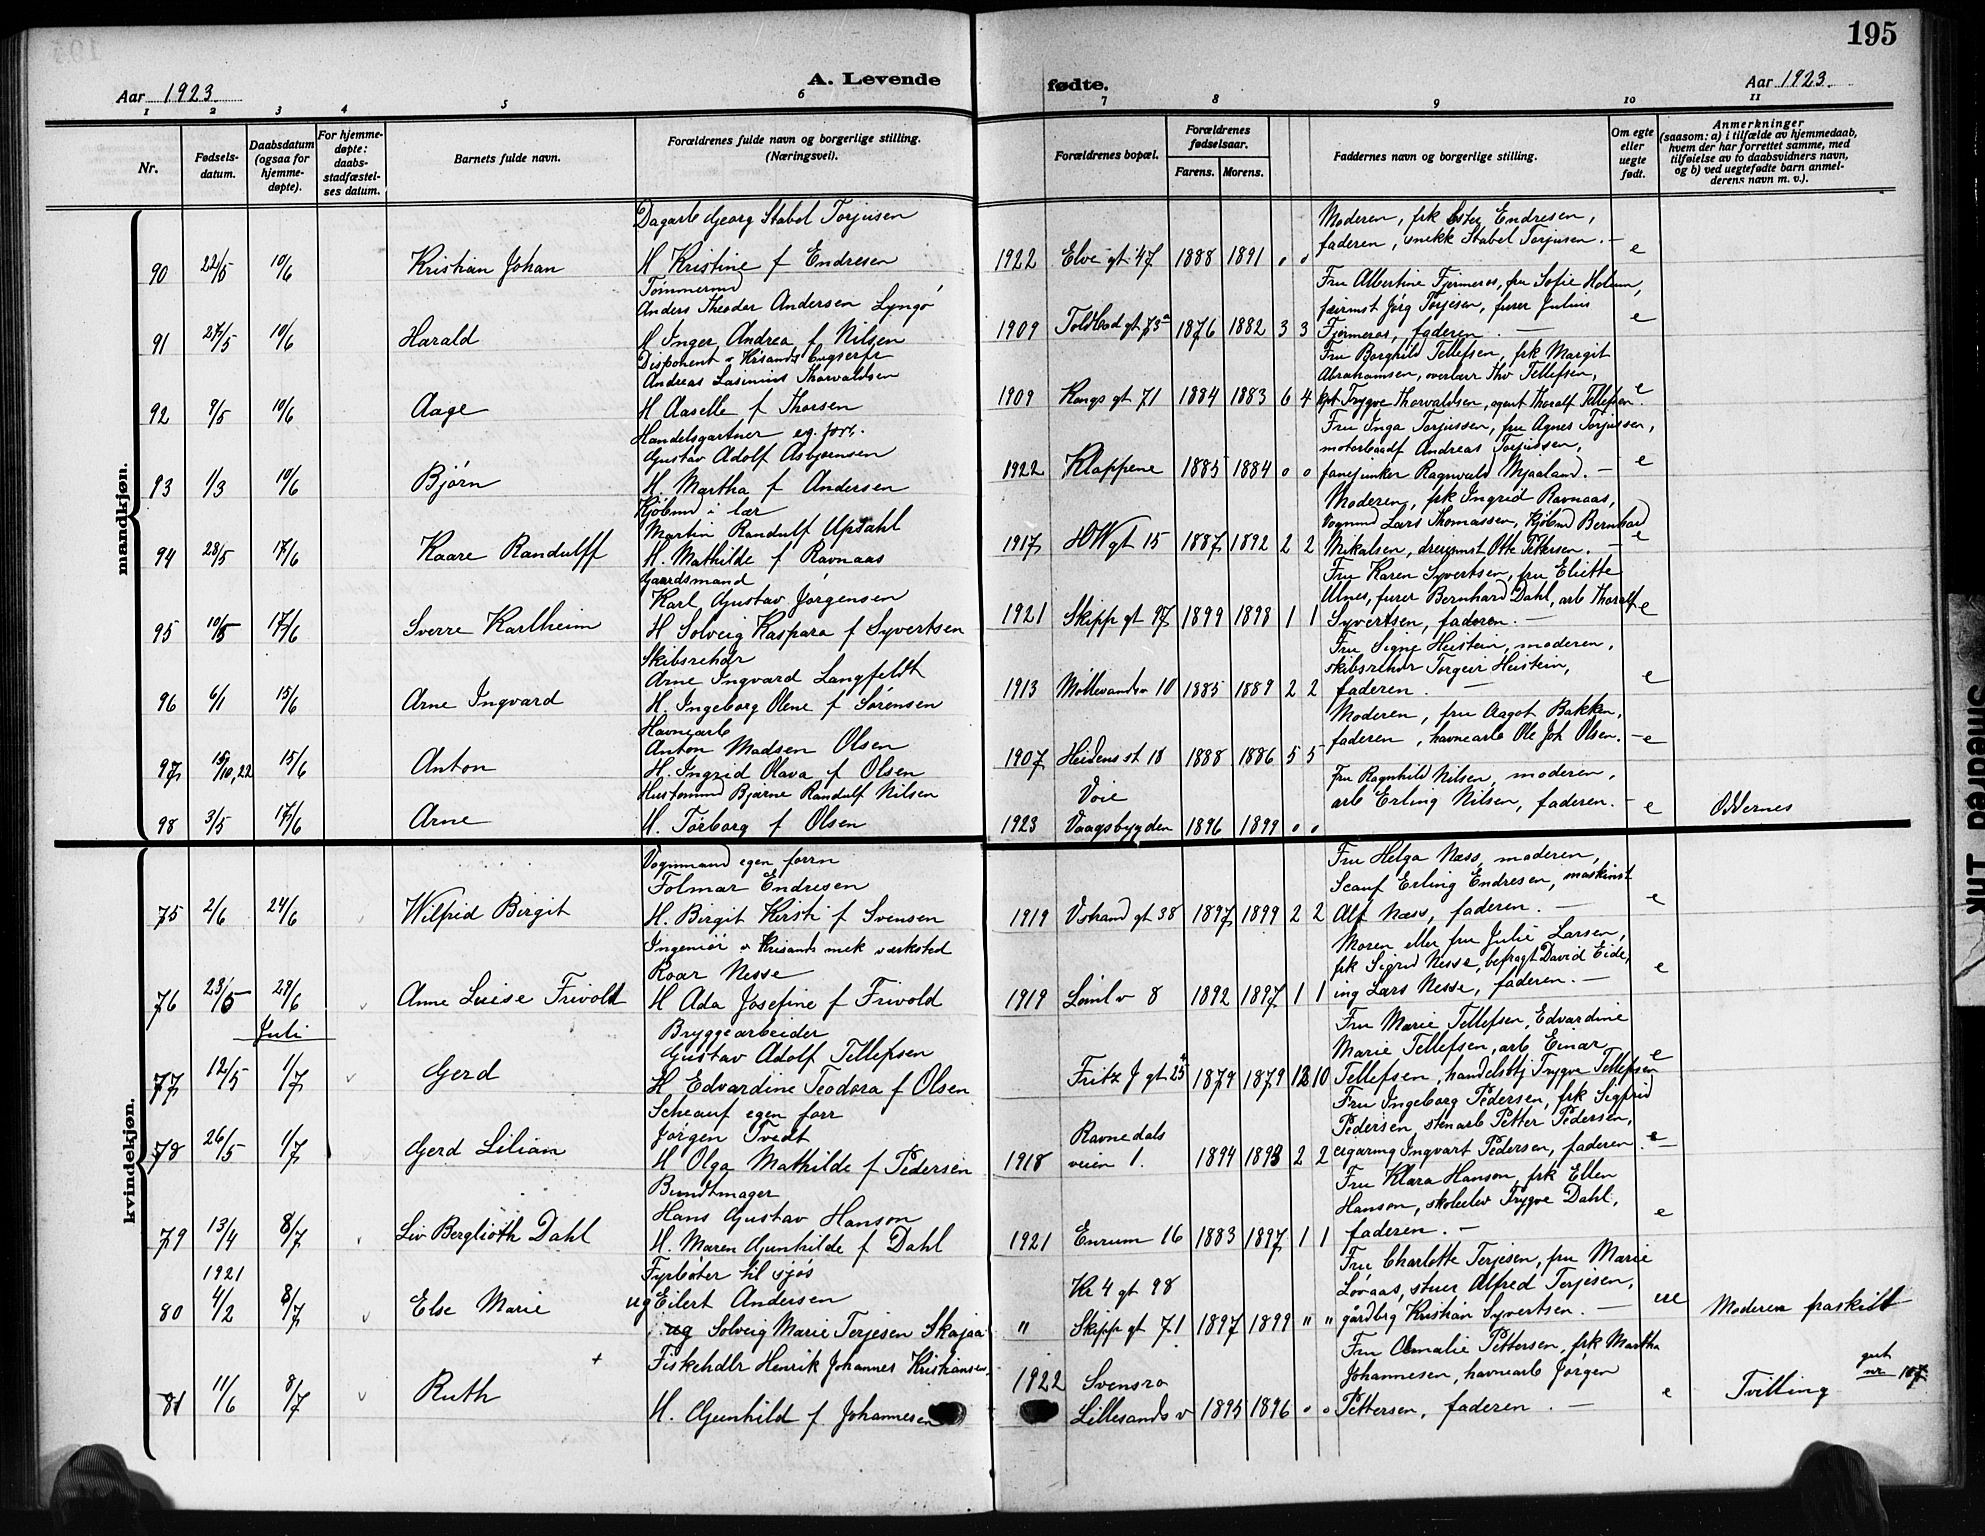 195
Aar 1923.
A. Levende fødte.
Aar 1923.
1 2 3 4 5 6 7 8 9 10 11
Nr.
Fødsels-
datum.
Daabsdatum
(ogsaa for
hjemme-
døpte).
For hjemme-
døpte:
daabs-
stadfæstel-
ses datum.
Barnets fulde navn.
Forældrenes fulde navn og borgerlige stilling.
(Næringsvei).
Forældrenes bopæl.
Forældrenes
fødselsaar.
Farens. Morens.
Faddernes navn og borgerlige stilling.
Om egte
eller
uegte
født.
Anmerkninger
(saasom: a) i tilfælde av hjemmedaab,
hvem der har forrettet samme, med
tilføielse av to daabsvidners navn,
og b) ved uegtefødte barn anmel-
derens navn m. v.).
mandkjøn.
Dagarb Georg Stabel Torjusen
Moderen, frk Endresen,
faderen, snekk Stabel Torjusen. —
90 22/5 10/6 Kristian Johan H Kristine f Endresen 1922 Elve gt 47 1888 1891 0 0 e
Tømmermd
Anders Theodor Andersen Lyngø
Fru Albertine Fjermeros, fru Sofie Holum,
Jørg Torjesen, furer Julius
91 27/5 10/6 Harald H Inger Andrea f Nilsen 1909 Toldbod gt 73a 1876 1882 3 3 Fjermeros, faderen. — e
Disponent v Krisands
Andreas Thorvaldsen
Fru Borghild Tellefsen, frk Margit
Abrahamsen, overlær Thv Tellefsen,
92 9/5 10/6 Aage H Aaselle f Thorsen 1909 Kongs gt 71 1884 1883 6 4 kpt Trygve Thorvaldsen, agent Thoralf Tellefsen. e
Handelsgartner eg. forr.
Gustav Adolf Asbjørnsen
Fru Inga Torjussen, fru Agnes Torjussen,
Andreas Torjussen,
93 1/3 10/6 Bjørn H. Martha f Andersen 1922 Klappene 1885 1884 0 0 fanejunker Ragnvald Mjaaland. — e
Kjøbmd i lær
Martin Randulf Upsahl
Moderen, frk Ingrid Ravnaas,
Vognmd Lars Thomassen, Kjøbmd Bernhard
94 28/5 17/6 Kaare Randulff H. Mathilde f Ravnaas 1917 HW gt 15 1887 1892 2 2 Mikalsen, Otto Pettersen. — e
Gaardsmand
Karl Gustav Jørgensen
Fru Karen Syvertsen, fru Eliette
Ulnes, furer Bernhard Dahl, arb Thoralf
95 10/5 17/6 Sverre Karlheim H Solveig Kaspara f Syvertsen 1921 Skipp gt 97 1899 1898 1 1 Syvertsen, faderen. — e
Skibsrehdr
Arne Ingvard Langfeldt
Fru Signe Heistein, moderen,
skibsrehdr Torgeir Heistein,
96 6/1 15/6 Arne Ingvard H. Ingeborg Olene f Sørensen 1913 Møllevandsv 10 1885 1889 2 2 faderen. — e
Havnearb
Anton Madsen Olsen
Moderen, fru Aagot Bakken,
faderen, havnearb Ole Joh Olsen. — e
97 15/10,22 15/6 Anton H. Ingrid Olava f Olsen 1907 Heidens st 18 1888 1886 5 5
Bjarne Randulf Nilsen
Voie
Fru Ragnhild Nilsen, moderen,
arb Erling Nilsen, faderen. —
98 3/5 17/6 Arne H. Torborg f Olsen 1923 Vaagsbygden 1896 1899 0 0 e Oddernes
kvindekjøn.
Vognmand egen forrn
Folmar Endresen
Fru Helga Næss, moderen,
Scauf Erling Endresen, maskinst
75 2/6 24/6 Wilfrid Birgit H. Birgit Kersti f Svensen 1919 Vstrand gt 38 1897 1899 2 2 Alf Næss, faderen. — e
Ingeniør v Krisands mek værksted
Roar Nesse
Moren eller fru Julie Larsen,
frk Sigrid Nesse, befragt David Eide,
76 23/5 29/6 Anne Luise Frivold H Ada Josefine f Frivold 1919 8 1892 1897 1 1 ing Lars Nesse, faderen. — e
Juli
Bryggearbeider
Gustav Adolf Tellefsen
Fru Marie Tellefsen, Edvardine
Marie Tellefsen, arb Einar
77 12/5 1/7 Gerd H Edvardine Teodora f Olsen Fritz J gt 25a 1879 1879 12 10 Tellefsen, handelsbtj Trygve Tellefsen e
Scheauf egen forr
Jørgen Tvedt
Ravnedals
Fru Ingeborg Pedersen, frk Sigfrid
Pedersen stenarb Petter Pedersen,
78 26/5 1/7 Gerd Lilian H Olga Mathilde f Pedersen 1918 veien 1. 1894 1893 2 2 Ingvart Pedersen, faderen. e
Bundtmager
Hans Gustav Hanson
Fru Klara Hanson, frk Ellen
Hanson, skoleelev Trygve Dahl,
79 13/4 8/7 Liv Bergliøth Dahl H. Maren Gunhilde f Dahl 1921 Enrum 16 1883 1897 1 1 faderen. — e
1921
Fyrbøter til sjøs
ug Eilert Andersen
Kr 4 gt 98
Fru Charlotte Terjesen, fru Marie
Løvaas, stuer Alfred Terjesen,
80 4/2 8/7 Else Marie ug Solveig Marie Terjesen Skajaa " Skipp gt 71 1897 1899 " " gårdbrg Kristian Syvertsen. — ue Moderen fraskilt
+
Fiskehdlr Henrik Johannes Kristiansen,
1922 Svensro
Fru Amalie Pettersen, frk Martha
Johannesen, havnearb Jørgen
81 11/6 8/7 Ruth H. Gunhild f Johannesen Lillesands v 1895 1896 0 0 Pettersen, faderen. — e Tvilling gut nr 107
Smeared Ink